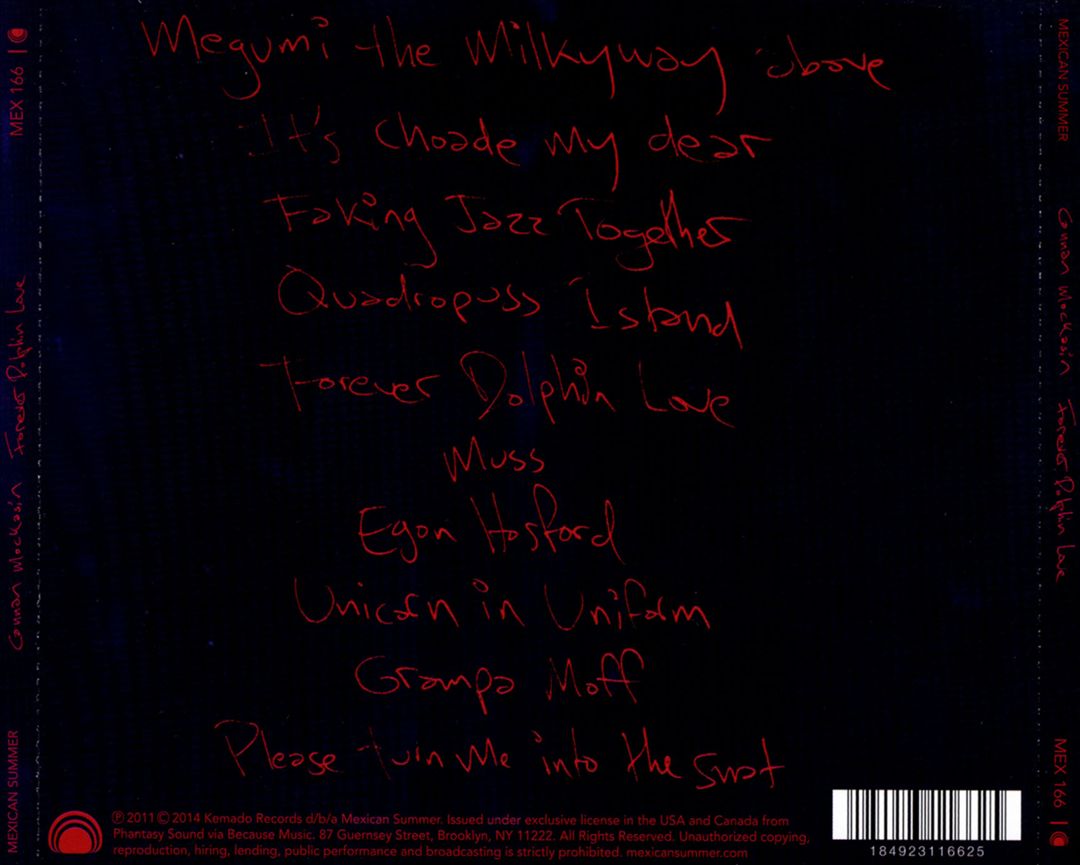 Megumi the Milkyway above
It's Choade My dear
Faking Jazz Together
Quadropuss Island
Forever Dolphin Love
Muss
Egon Hosford
Unicorn in Uniform
Grampa Moff
Please turn Me into the snat
℗ 2011 © 2014 Kemado Records d/b/a Mexican Summer. Issued under exclusive license in the USA and Canada from
Phantasy Sound via Because Music. 87 Guernsey Street, Brooklyn, NY 11222. All Rights Reserved. Unauthorized copying,
reproduction, hiring, lending, public performance and broadcasting is strictly prohibited. mexicansummer.com
184923116625
MEXICAN SUMMER
Connan Mockasin Forever Dolphin Love
MEX 166
MEXICAN SUMMER
Connan Mockasin Forever Dolphin Love
MEX 166